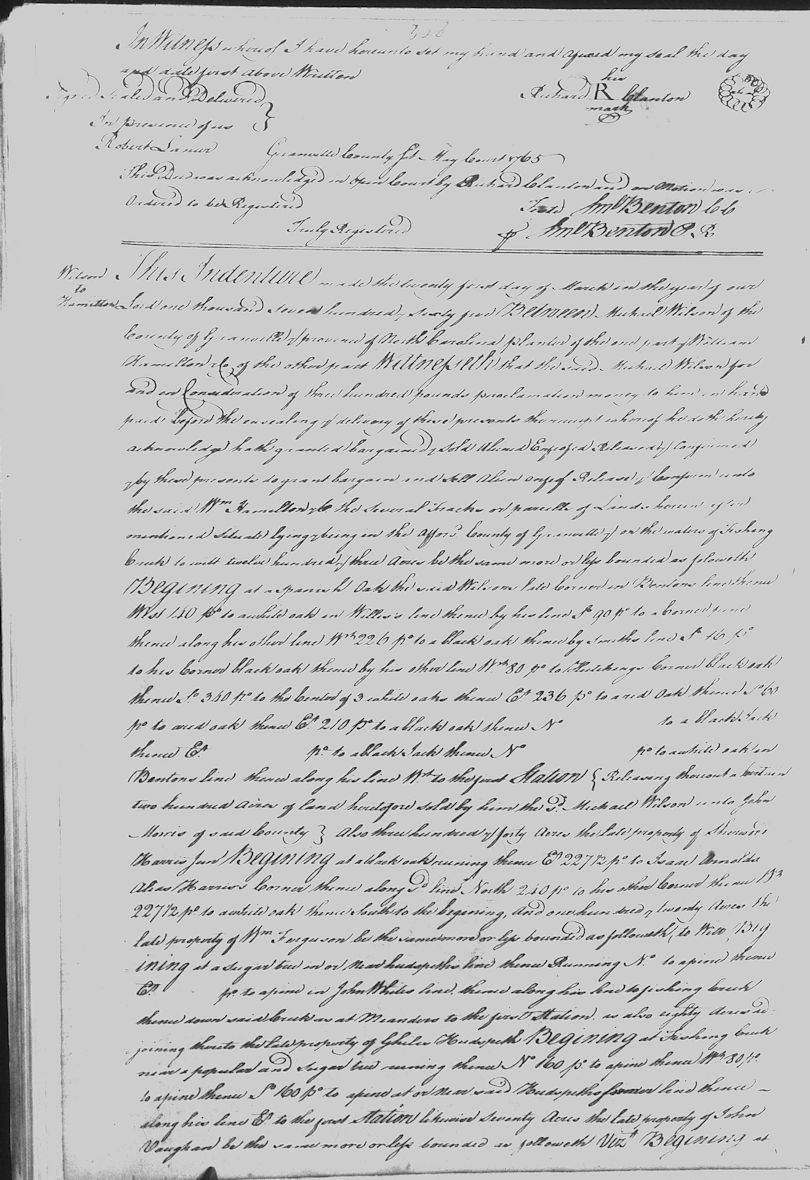 In Witness whereof I have hereunto set my hand and affixed my seal the day
and date first above Written
Signed Sealed and Delivered
In presence of us
Robert Lanier
his
Richard R Clanton
mark
Seal
Granville County Sct May Court 1765
This Deed was acknowledged in Open Court by Richard Clanton and on Motion was
Ordered to be Registered
Test Saml Benton CC
Truly Registered
pr Saml Benton P.R.
Wilson
to
Hamilton
This Indenture made the twenty first day of March in the year of our
Lord one thousand seven hundred & sixty five Between Michael Wilson of the
County of Granville & province of North Carolina planter of the one part & William
Hamilton & Co of the other part Witnesseth that the said Michael Wilson for
and in Consideration of three hundred pounds proclamation money to him in hand
paid before the ensealing & delivery of these presents the receipt whereof he doth hereby
acknowledge hath granted bargained & sold Aliened Enfeofed Released & Confirmed
& by these presents do grant bargain and Sell Alien enfeof Release & Confirm unto
the said Wm Hamilton & Co the Several Tracts or parcells of Land herein after
mentioned Situate lying & being in the Affors'd County of Granville & on the waters of Fishing
Creek to witt twelve hundred & three Acres be the same more or less bounded as foloweth
Begining at a Spanish Oak the said Wilsons late Corner in Bentons line thence
West 140 po to a white oak in Willis's line thence by his line So 90 po to a Corner pine
thence along his other line Wt 226 po to a black oak thence by Smiths line So 46 po
to his Corner black oak thence by his other line Wt 80 po to Hutchings Corner black oak
thence So 340 po to the Center of 3 white oaks thence Et 236 po to a red Oak thence So 60
po to a red oak thence Et 210 po to a black oak thence No to a black Jack
thence Et po to a black Jack thence No po to a white oak in
Bentons line thence along his line Wt to the first Station { Releasing thereout
two hundred Acres of land heretofore sold by him the sd Michael Wilson unto John
Morris of said County } Also three hundred & forty Acres the late property of Sherwood
Harris Junr Begining at a black oak runing thence Et 227 1/2 po to Isaac Arnolds
Alias Harris's Corner thence along sd line North 240 po to his other Corner thence Wt
227 1/2 po to a white oak thence South to the begining, And one hundred & twenty Acres the
late property of Wm Ferguson be the same more or less bounded as followeth, to Witt, Beg
ining at a Sugar tree in or Near hudspeths line thence Running No to a pine thence
Et po to a pine in John Whites line, thence along his line to fishing Creek
thence down said Creek as it Meanders to the first Station, as also eighty Acres ad-
joining thereto the late property of Ghiles Hudspeth Begining at Fishing Creek
near a popular and Sugar tree runing thence No 160 po to a pine thence Wt 80 po
to a pine thence So 160 po to a pine at or Near said Hudspeths former line thence
along his line Et to the first Station likewise Seventy Acres the late property of John
Vaughan be the same more or less bounded as followeth Vizt Begining at